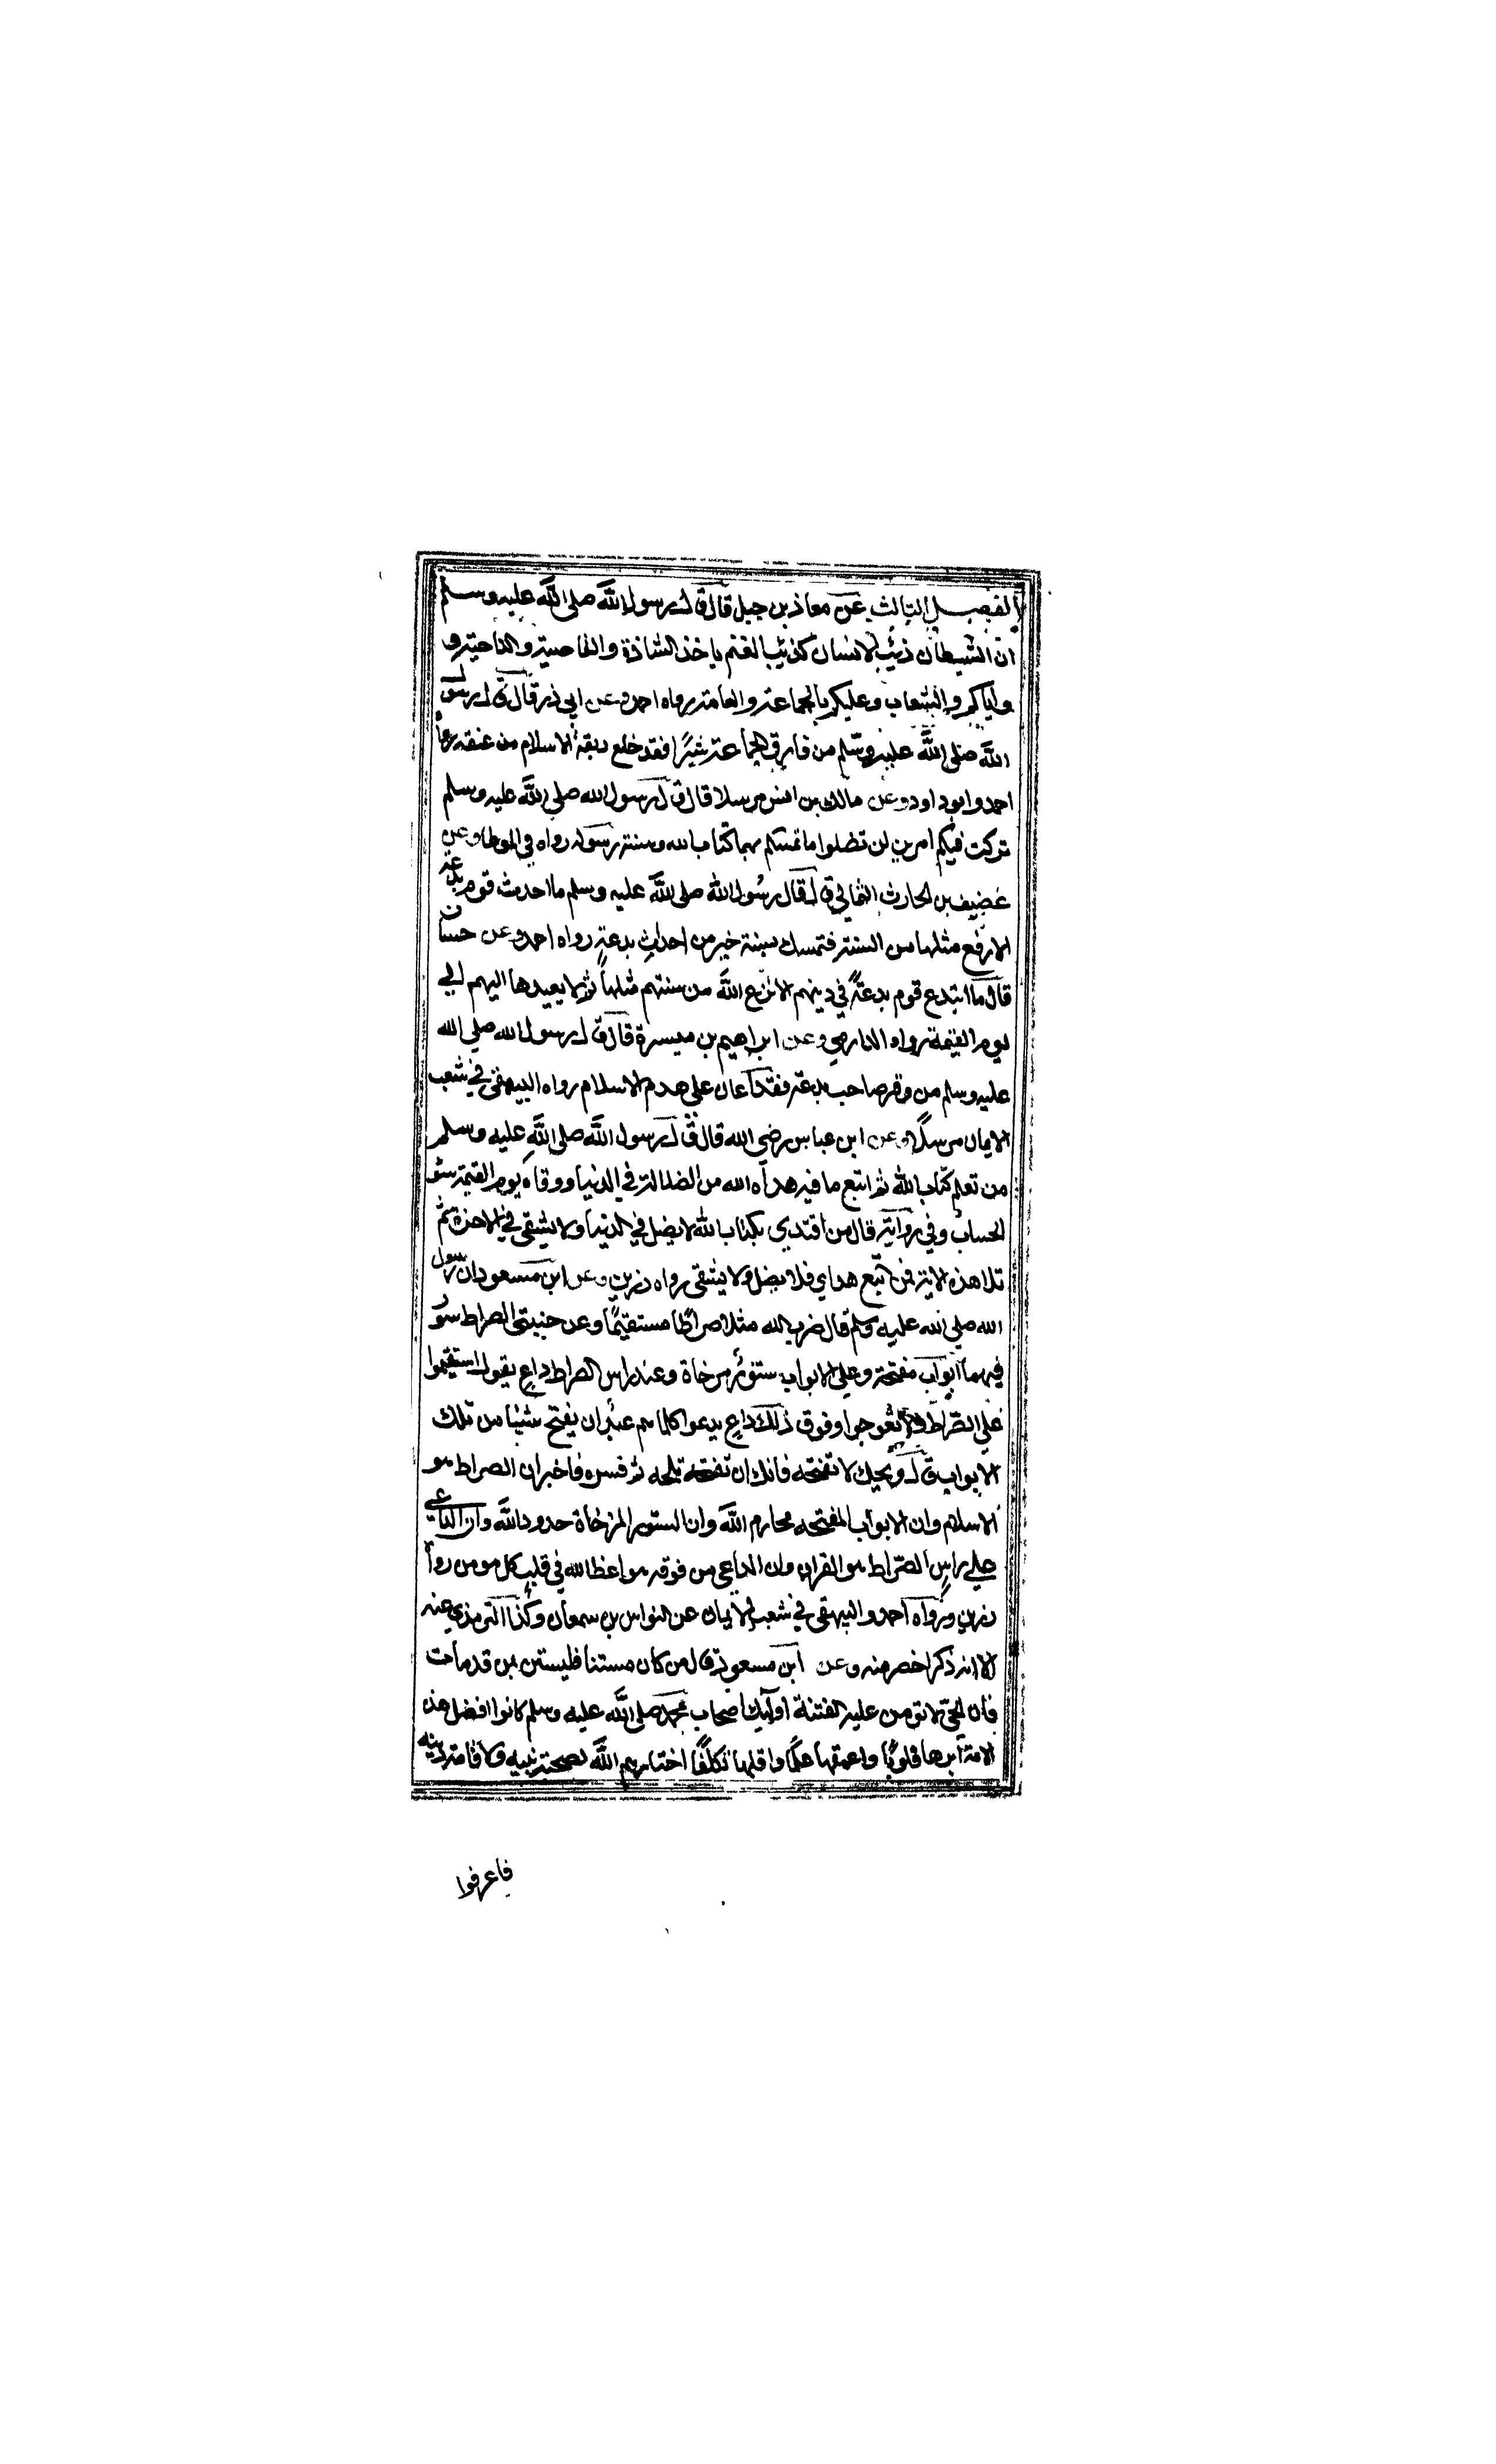 الفصل الثالث عن معاذ بن جبل قال قال رسول الله صلى الله عليه وسلم
ان الشيطان ذئب الانسان كذئب الغنم ياخذ الشاذة والقاصية والناحية و
واياكم والشعاب وعليكم بالجماعة والعامة رواه احمد وعن ابي ذر قال قال رسول
الله صلى الله عليه وسلم من فارق الجماعة شبرًا فقد خلع ربقة الاسلام من عنقه رواه
احمد وابوداود وعن مالك بن انس مرسلا قال قال رسول الله صلى الله عليه وسلم
تركت فيكم امرين لن تضلوا ما تمسكتم بهما كتاب الله وسنة رسوله رواه في الموطا وعن
غضيف بن الحارث الثمالي قال قال رسول الله صلى الله عليه وسلم ما احدث قوم بدعة
الا رفع مثلها من السنة فتمسك بسنة خير من احداث بدعة رواه احمد وعن حسان
قال ما ابتدع قوم بدعةً في دينهم الا نزع الله من سنتهم مثلها ثم لا يعيدها اليهم الى
يوم القيمة رواه الدارمي وعن ابراهيم بن ميسرة قال قال رسول الله صلى الله
عليه وسلم من وقر صاحب بدعة فقد اعان على هدم الاسلام رواه البيهقي في شعب
الايمان مرسلًا وعن ابن عباس رضي الله قال قال رسول الله صلى الله عليه وسلم
من تعلم كتاب الله ثم اتبع ما فيه هداه الله من الضلالة في الدنيا ووقاه يوم القيمة سوء
الحساب وفي رواية قال من اقتدى بكتاب الله لا يضل في الدنيا ولا يشقى في الاخرة ثم
تلا هذه الاية فمن اتبع هداي فلا يضل ولا يشقى رواه رزين وعن ابن مسعود ان رسول
الله صلى الله عليه وسلم قال ضرب الله مثلا صراطًا مستقيمًا وعن جنبتي الصراط سور
فيهما ابواب مفتحة وعلى الابواب ستور مرخاة وعند راس الصراط داع يقول استقيموا
على الصراط ولا تعوجوا وفوق ذلك داع يدعوا كلما هم عبد ان يفتح شيئا من تلك
الابواب قال ويحك لا تفتحه فانك ان تفتحه تلجه ثم فسره فاخبر ان الصراط هو
الاسلام وان الابواب المفتحه محارم الله وان الستور المرخاة حدود الله وان الداعي
على راس الصراط هو القران وان الداعي من فوقه هو واعظ الله في قلب كل مومن رواه
رزين ورواه احمد والبيهقي في شعب الايمان عن النواس بن سمعان وكذا الترمذي عنه
الا انه ذكر اخصر منه وعن ابن مسعود قال من كان مستنا فليستن بمن قد مات
فان الحي لا تومن عليه الفتنة اوليك اصحاب محمد صلى الله عليه وسلم كانوا افضل هذه
الامة ابرها قلوبًا واعمقها علمًا واقلها تكلفًا اختارهم الله لصحبة نبيه ولاقامة دينه
فاعرفوا